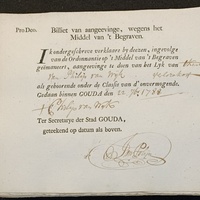 Pro Deo.
Billiet van aangeevinge, wegens het
Middel van 't Begraven.
Ik ondergeschreve verklaare by deezen, ingevolge
van de Ordonnantie op 't Middel van 't Begraven
geëmaneert, aangeevinge te doen van het Lyk van
van Philip van Wyk
als gehoorende onder de Classis van d'onvermogende.
Gedaan binnen GOUDA den 22 1788
van Wyk
Ter Secretarye der Stad GOUDA,
getekend op datum als boven.